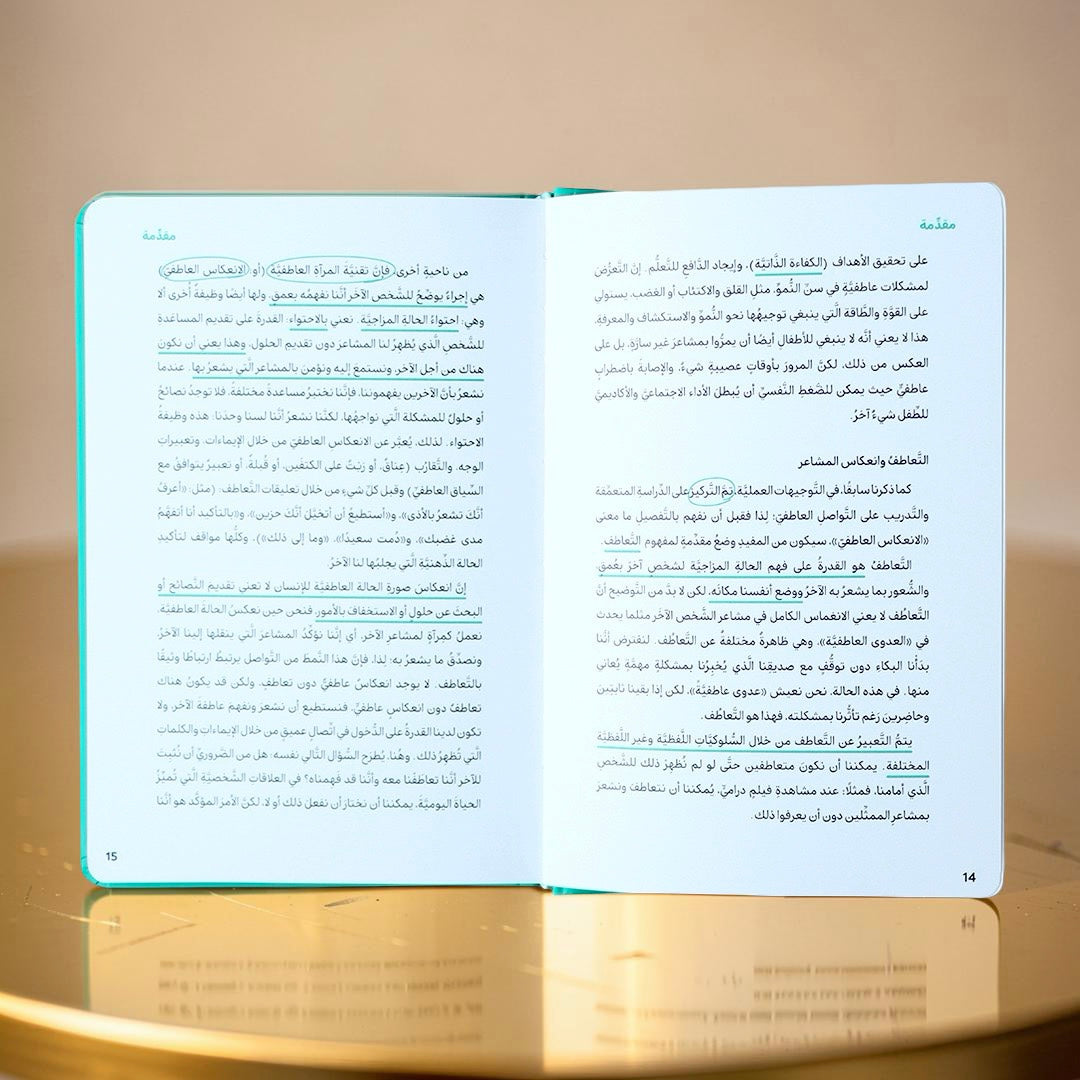 مقدّمة
على تحقيق الأهداف (الكفاءة الذَّاتيَّة)، وإيجاد الدَّافع للتَّعلُّم. إنَّ التَّعرُّضَ
لمشكلات عاطفيَّةٍ في سنّ النُّموِّ، مثلِ القلق والاكتئاب أو الغضب، يستولي
على القوَّة والطَّاقة الَّتي ينبغي توجيهُها نحو النُّموِّ والاستكشاف والمعرفة.
هذا لا يعني أنَّه لا ينبغي للأطفال أيضًا أن يمرُّوا بمشاعرَ غير سارَّة، بل على
العكس من ذلك، لكنَّ المرورَ بأوقاتٍ عصيبةٍ شيءٌ، والإصابةَ باضطرابٍ
عاطفيٍّ حيث يمكن للضَّغطِ النَّفسيِّ أن يُبطلَ الأداء الاجتماعيَّ والأكاديميَّ
للطِّفل شيءٌ آخرُ.
التَّعاطفُ وانعكاس المشاعر
كما ذكرنا سابقًا، في التَّوجيهات العمليَّة، تمَّ التَّركيز على الدِّراسةِ المتعمِّقة
والتَّدريب على التَّواصل العاطفيّ؛ لِذا فقبل أن نفهم بالتَّفصيل ما معنى
«الانعكاس العاطفيّ»، سيكون من المفيدِ وضعُ مقدِّمةٍ لمفهوم التَّعاطف.
التَّعاطفُ هو القدرةُ على فهمِ الحالةِ المزاجيَّة لشخصٍ آخرَ بعُمقٍ،
والشُّعورِ بما يشعرُ به الآخرُ ووضع أنفسنا مكانَه، لكن لا بدَّ من التَّوضيح أنَّ
التَّعاطُف لا يعني الانغماس الكامل في مشاعر الشَّخص الآخر مثلما يحدث
في «العدوى العاطفيَّة»، وهي ظاهرةٌ مختلفةٌ عن التَّعاطُف. لنفترض أنَّنا
بدأنا البكاء دون توقُّفٍ مع صديقِنا الَّذي يُخبرُنا بمشكلةٍ مهمَّةٍ يُعاني
منها. في هذه الحالة، نحن نعيش «عدوى عاطفيَّةً»، لكن إذا بقينا ثابتِين
وحاضِرين رَغم تأثُّرنا بمشكلته، فهذا هو التَّعاطُف.
يتمُّ التَّعبيرُ عن التَّعاطف من خلال السُّلوكيَّات اللَّفظيَّة وغير اللَّفظيَّة
المختلفة. يمكننا أن نكون متعاطفين حتَّى لو لم نُظهر ذلك للشَّخص
الَّذي أمامنا، فمثلًا: عند مشاهدة فيلمٍ دراميٍّ، يُمكننا أن نتعاطف ونشعرَ
بمشاعرِ الممثِّلين دون أن يعرفوا ذلك.
14
مقدّمة
من ناحيةٍ أخرى، فإنَّ تقنيَّة المرآة العاطفيَّة (أو الانعكاس العاطفيّ)
هي إجراءٌ يوضِّحُ للشَّخص الآخَر أنَّنا نفهمُه بعمقٍ، ولها أيضًا وظيفةٌ أخرى ألا
وهي: احتواءُ الحالة المزاجيَّة. نعني بالاحتواء: القدرةَ على تقديم المساعدة
للشَّخصِ الَّذي يُظهِرُ لنا المشاعرَ دون تقديم الحلول، وهذا يعني أن نكونَ
هناك من أجل الآخرِ، ونستمعَ إليه ونؤمن بالمشاعرِ الَّتي يشعرُ بها. عندما
نشعرُ بأنَّ الآخرين يفهموننا، فإنَّنا نختبرُ مساعدةً مختلفةً، فلا توجدُ نصائحُ
أو حلولٌ للمشكلة الَّتي نواجهُها، لكنَّنا نشعرُ أنَّنا لسنا وحدَنا؛ هذه وظيفةُ
الاحتواء. لذلك، يُعبَّر عن الانعكاسِ العاطفيّ من خلال الإيماءات، وتعبيراتِ
الوجه، والتَّقارُب (عِناقٌ، أو رَبتٌ على الكتفَين، أو قُبلةٌ، أو تعبيرٌ يتوافقُ مع
السِّياق العاطفيّ) وقبل كلِّ شيءٍ من خلال تعليقات التَّعاطف: (مثل: «أعرفُ
أنَّكَ تشعرُ بالأذى»، و«أستطيعُ أن أتخيَّلَ أنَّكَ حزين»، و«بالتأكيد أنا أتفهَّمُ
مدى غضبك»، و«دُمت سعيدًا»، «وما إلى ذلك»)، وكلُّها مواقف لتأكيدِ
الحالة الذِّهنيَّةِ الَّتي يجلبُها لنا الآخرُ.
إنَّ انعكاسَ صورةِ الحالة العاطفيَّة للإنسان لا تعني تقديمَ النَّصائح أو
البحثَ عن حلولٍ أو الاستخفافَ بالأمورِ، فنحن حين نعكسُ الحالةَ العاطفيَّة،
نعملُ كمرآةٍ لمشاعرِ الآخر، أي إنَّنا نؤكِّدُ المشاعرَ الَّتي ينقلها إلينا الآخرُ،
ونصدِّقُ ما يشعرُ به؛ لِذا، فإنَّ هذا النَّمط من التَّواصل يرتبطُ ارتباطًا وثيقًا
بالتَّعاطف. لا يوجد انعكاسٌ عاطفيٌّ دون تعاطفٍ، ولكن قد يكونُ هناك
تعاطفٌ دون انعكاسٍ عاطفيٍّ، فنستطيعُ أن نشعرَ ونفهمَ عاطفةَ الآخرِ، ولا
تكون لدينا القدرةُ على الدُّخول في اتِّصالٍ عميقٍ من خلال الإيماءات والكلمات
الَّتي تُظهرُ ذلك. وهُنا، يُطرَح السُّؤال التَّالي نفسه: هل من الضَّروريِّ أن نُثبِتَ
للآخرِ أنَّنا تعاطَفْنا معه وأنَّنا قد فَهمناه؟ في العلاقاتِ الشَّخصيَّةِ الَّتي تُميِّزُ
الحياةَ اليوميَّةَ، يمكننا أن نختارَ أن نفعل ذلك أو لا، لكنَّ الأمرَ المؤكَّد هو أنَّنا
15